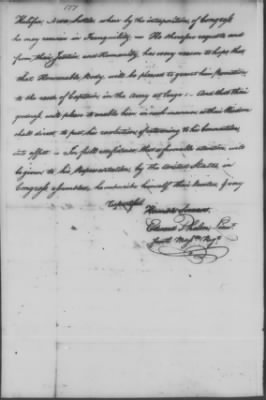 177
Halifax, Nova Scotia where by the interposition of Congress
he may remain in Tranquility — He therefore requests and
from their Justice and Humanity has every reason to hope that
that Honorable Body, will be pleased to grant him Promotion,
to the rank of Captain in the Army at large: — And that they
will please to enable him in such manner as their Wisdom
shall direct, to put his resolution, of returning to his Connections,
into effect — In full confidence that a favorable attention will
be given to his Representation by the United States in
Congress assembled, he subscribes himself their humble & very
Respectful
Humble Servant
Edmund Phelon, Lieut.
fourth Mass. Regt.